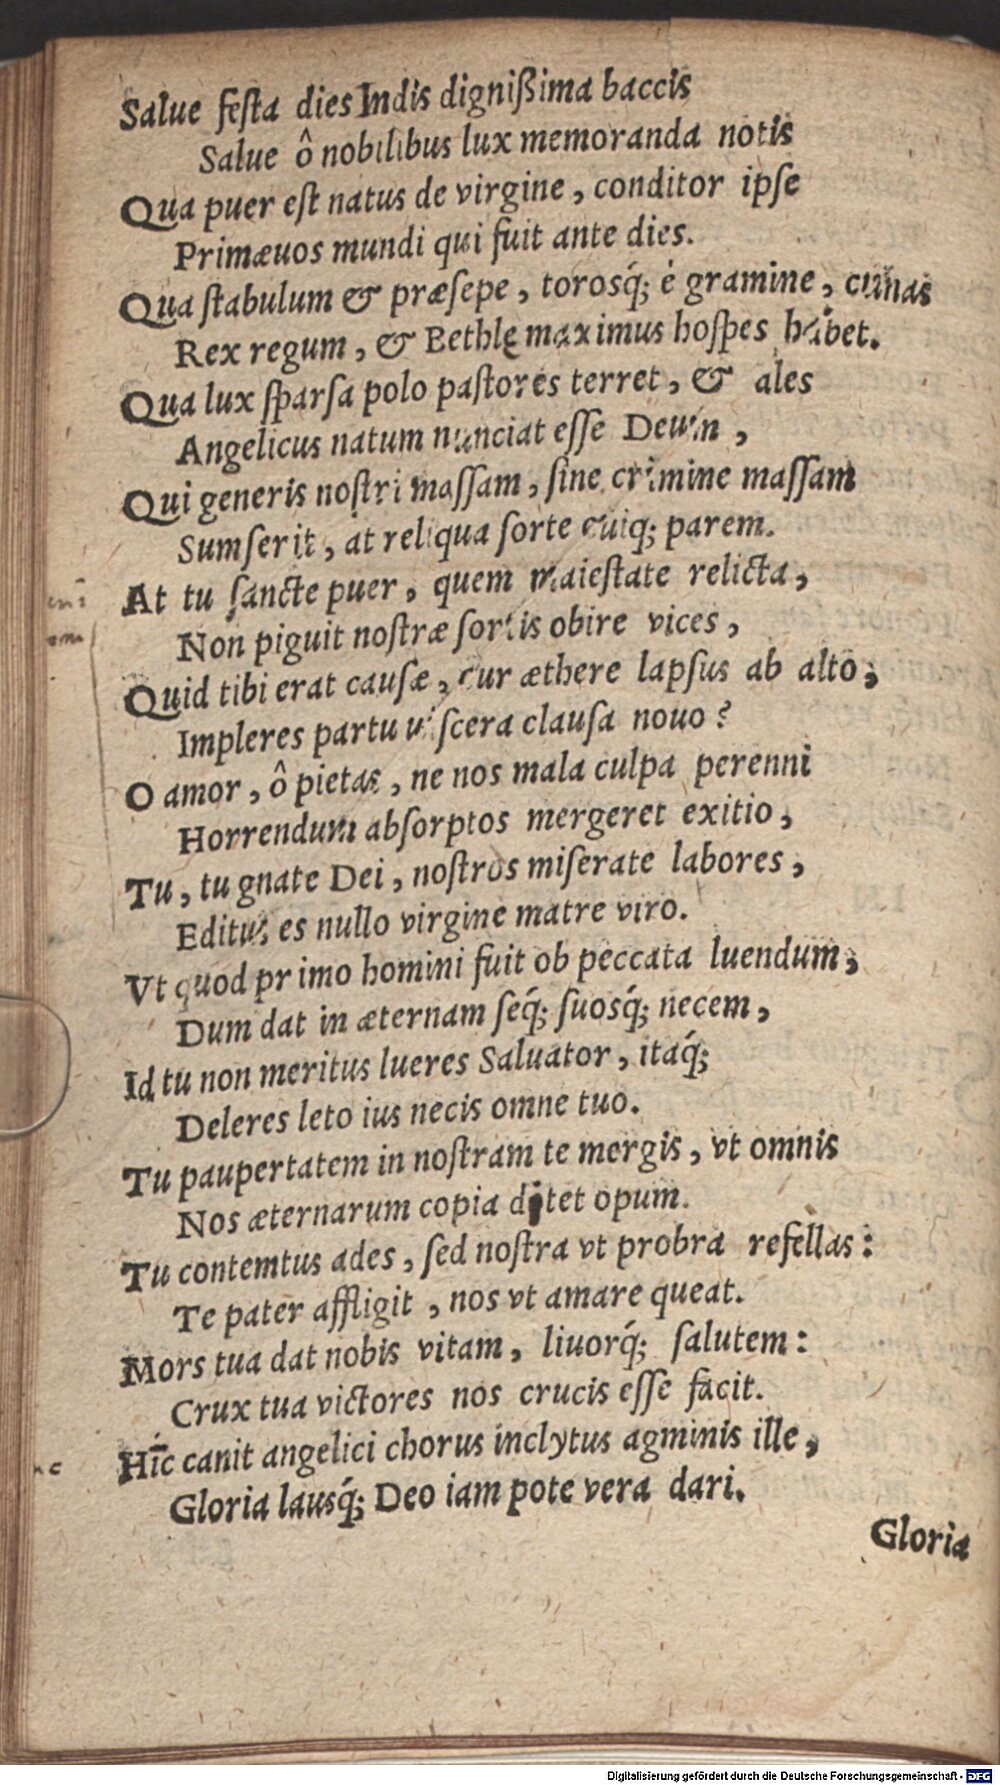 Salue feſta dies Indis dignißima baccis
Salue ô nobilibus lux memoranda notis
Qua puer eſt natus de virgine, conditor ipſe
Primæuos mundi qui fuit ante dies.
Qua ſtabulum & præſepe, torosq́; è gramine, cunas
Rex regum, & Bethlę maximus hoſpes habet.
Qua lux ſparſa polo paſtores terret, & ales
Angelicus natum nunciat eſſe Deum,
Qui generis noſtri maſſam, ſine crimine maſſam
Sumſerit, at reliqua ſorte cuiq; parem.
At tu ſancte puer, quem maieſtate relicta,
Non piguit noſtræ ſortis obire vices,
Quid tibi erat cauſæ, cur æthere lapſus ab alto;
Impleres partu viſcera clauſa nouo?
O amor, ô pietas, ne nos mala culpa perenni
Horrendum abſorptos mergeret exitio,
Tu, tu gnate Dei, noſtros miſerate labores,
Editus es nullo virgine matre viro.
Vt quod primo homini fuit ob peccata luendum;
Dum dat in æternam ſeq́; ſuosq́; necem,
Id tu non meritus lueres Saluator, itaq́;
Deleres leto ius necis omne tuo.
Tu paupertatem in noſtram te mergis, vt omnis
Nos æternarum copia ditet opum.
Tu contemtus ades, ſed noſtra vt probra refellas:
Te pater affligit, nos vt amare queat.
Mors tua dat nobis vitam, liuorq́; ſalutem:
Crux tua victores nos crucis eſſe facit.
Hîc canit angelici chorus inclytus agminis ille,
Gloria lausq́; Deo iam pote vera dari.
Gloria
Digitalisierung gefördert durch die Deutsche Forschungsgemeinschaft - DFG